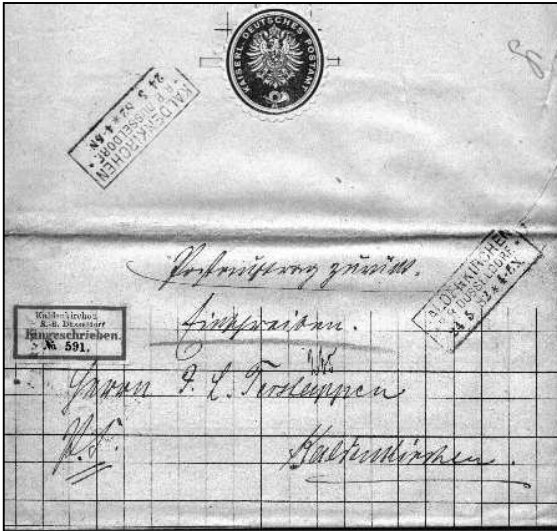 KAISERL. DEUTSCHES POSTAMT
KALDENKIRCHEN
R.B. DÜSSELDORF
24 5 82 * 4-5N.
KALDENKIRCHEN
R.B. DÜSSELDORF
24 5 82 *
Postauftrag zurück.
Einschreiben.
Kaldenkirchen
R.-B. Düsseldorf
Eingeschrieben.
№ 591.
Herrn J. L. Terstappen
Kaldenkirchen.